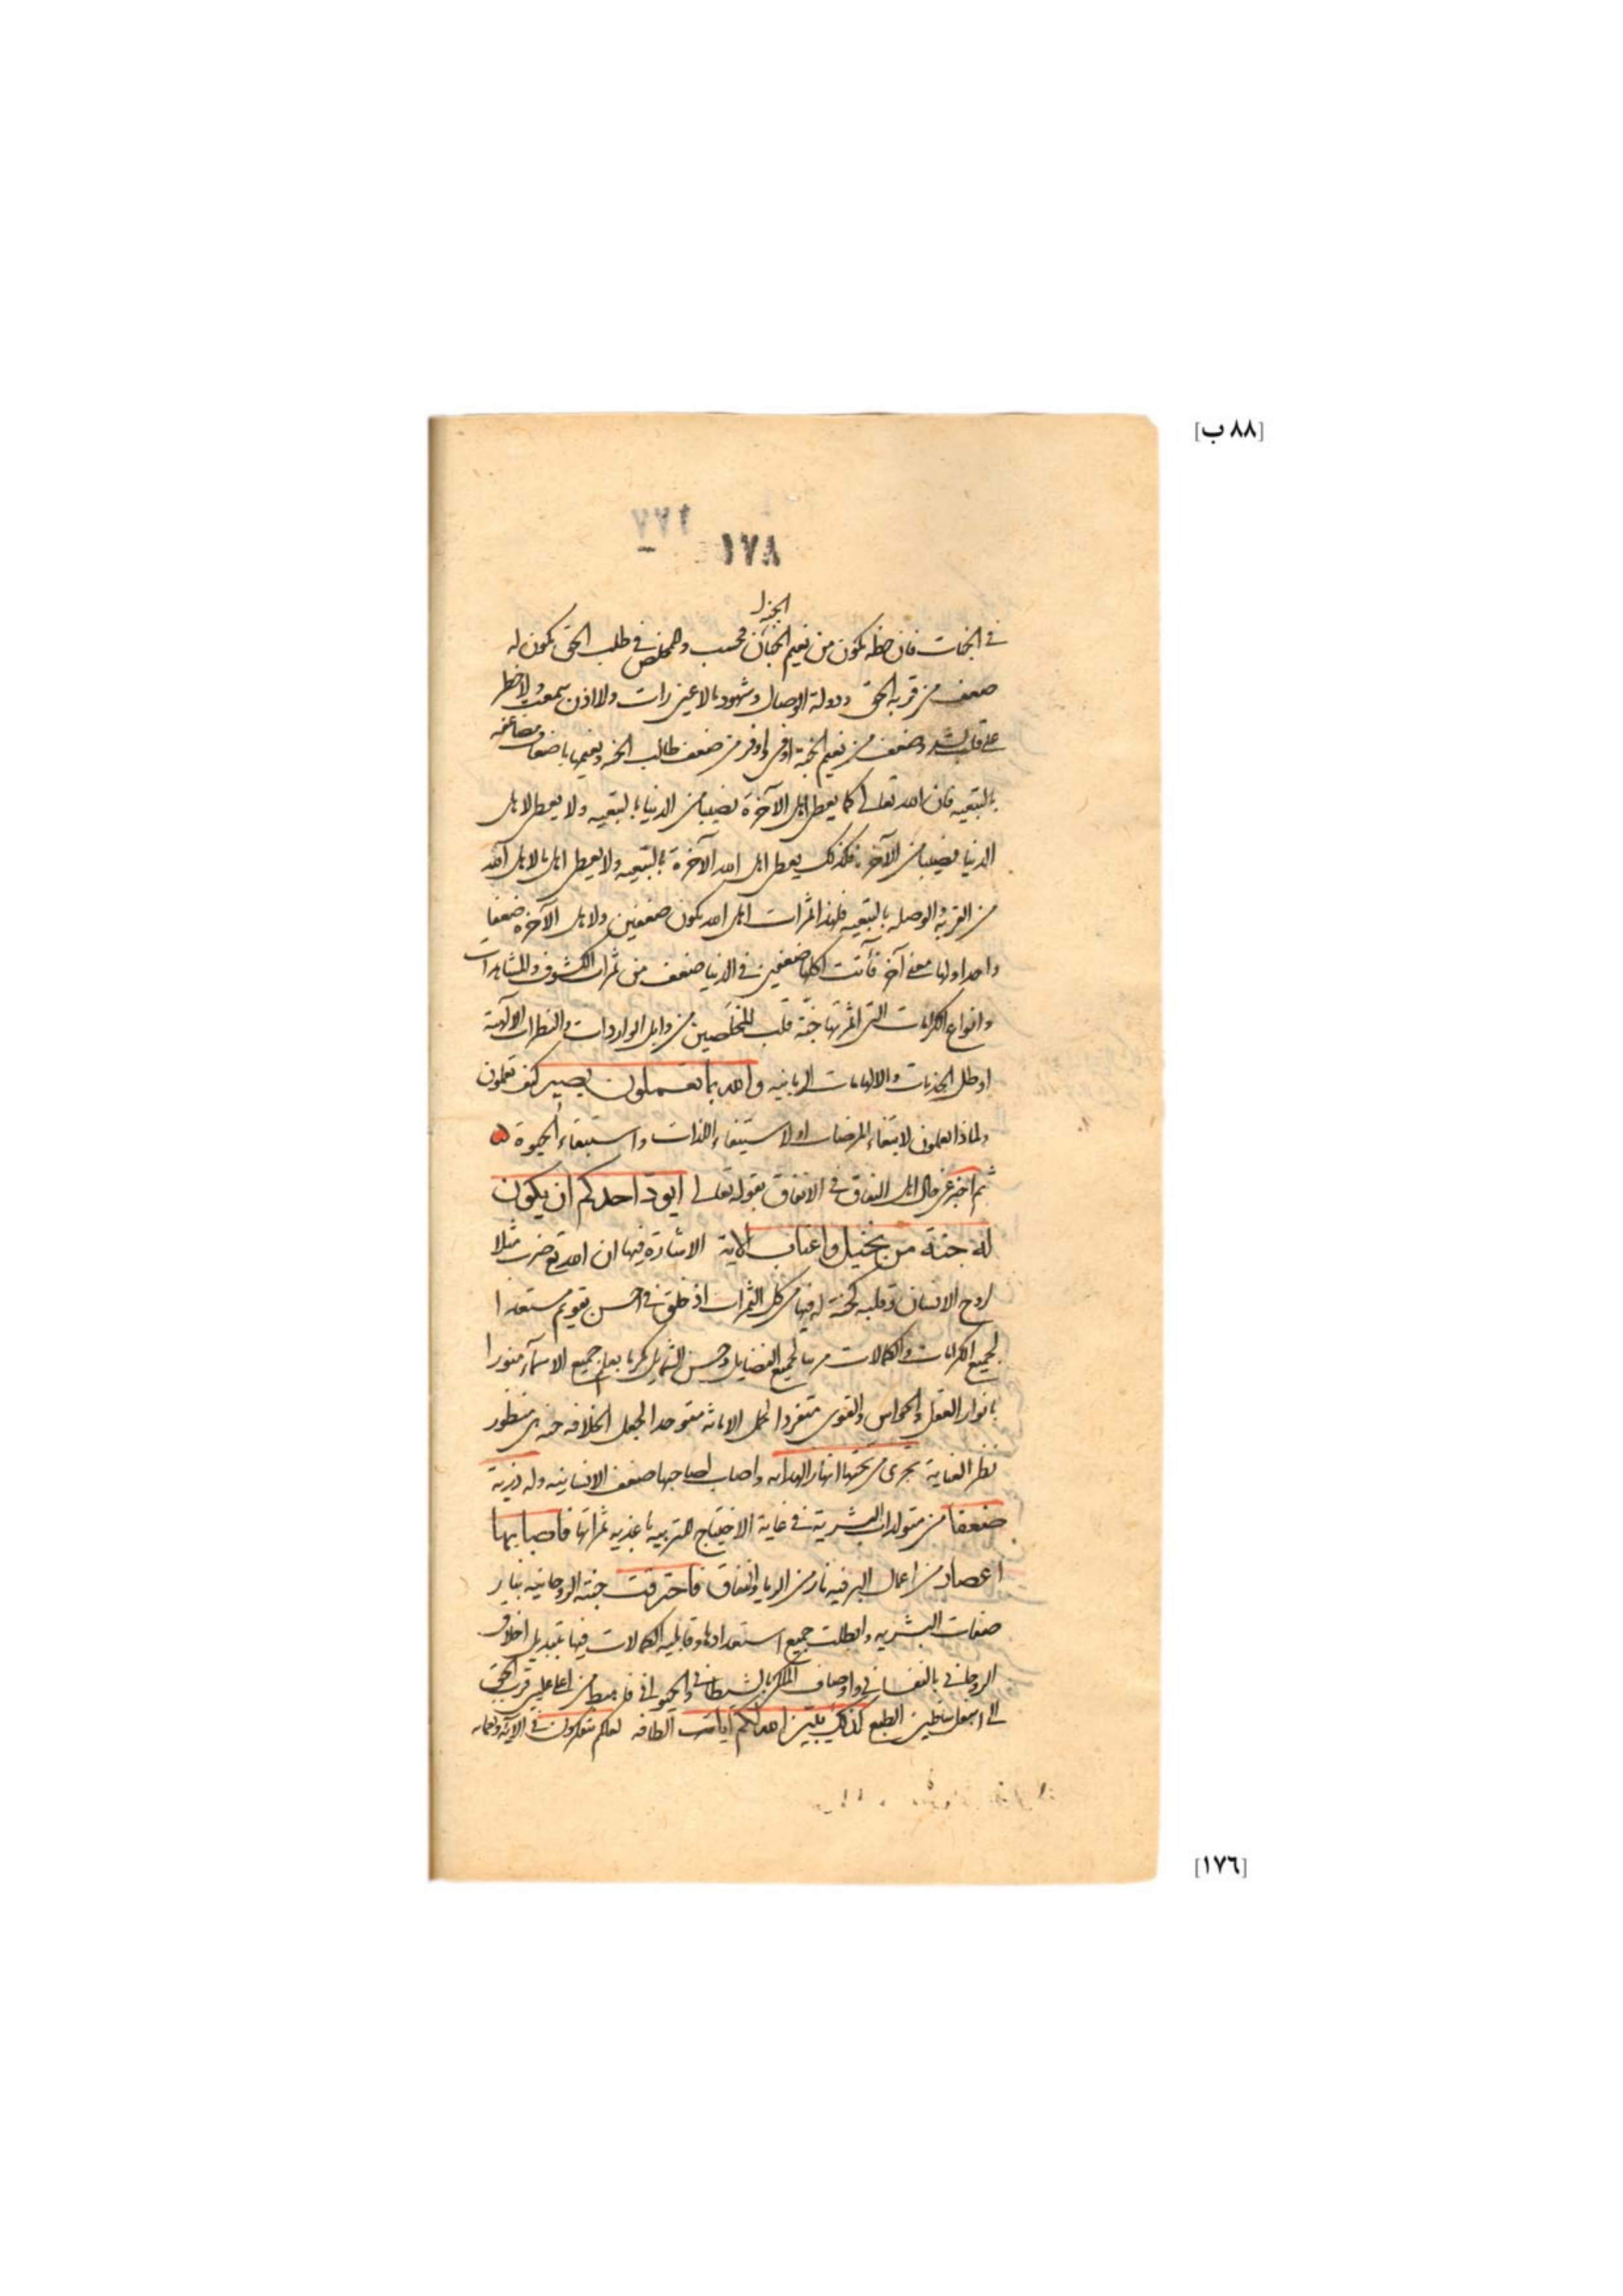 [٨٨ ب]
١٧٨
في الجنات فان حظه يكون من نعيم الجنان فحسب والمخلص في طلب الحق يكون له
ضعف من قربة الحق ودولة الوصال وشهود ما لا عين رات ولا اذن سمعت ولا خطر
على قلب بشر وضعف من نعيم الجنة اوفى واوفر من ضعف طالب الجنة ونعيمها باضعاف مضاعفه
بالتبعيه فان الله تعالى كما يعطى اهل الآخرة نصيبا من الدنيا بالتبعيه ولا يعطى لاهل
الدنيا نصيبا من الآخرة فكذلك يعطى اهل الله الآخرة بالتبعيه ولا يعطى اهل
من القربة والوصله بالتبعيه فلهذا ثمرات اهل الله يكون ضعفين ولاهل الآخرة ضعفا
واحدا ولها معنى آخر فآتت اكلها ضعفين في الدنيا ضعف من ثمرات الكشوف والمشاهدات
وانواع الكرامات التى اثمرتها جنة قلب المخلصين من وابل الواردات والنظرات الالهية
او طل الجذبات والالهامات الربانيه والله بما تعملون بصير كيف تعملون
ولماذا تعملون لابتغاء المرضات او لاستيفاء اللذات واستبقاء الحيوة
ثم اخبر عن حال اهل النفاق في الانفاق بقوله تعالى ايود احدكم ان يكون
له جنة من نخيل واعناب الاية الاشارة فيها ان الله تع ضرب مثلا
لروح الانسان وقلبه كجنة له فيها من كل الثمرات اذ خلق في احسن تقويم مستعدا
لجميع الكرامات والكمالات لجميع الفضايل وحسن الشمايل مكرما بعلم جميع الاسماء منورا
بانوار العقل والحواس والقوى متفردا لحمل الامانه متوحدا لجعل الخلافه منظور
نظر العناية تجرى من تحتها انهار الهدايه واصاب صاحبها ضعف الانسانيه وله ذرية
ضعفا من متولدات البشرية في غاية الاحتياج لتربيه باغذيه ثمراتها فاصابها
اعصار من اعمال البر فيه نار من الريا والنفاق فاحترقت جنته الروحانيه بنار
صفات البشريه وابطلت جميع استعدادها وقابليه الكمالات فيها بتبديل اخلاق
الروحانى بالنفسانى واوصاف الملكى بالشيطانى والحيوانى من اعلى عليين قرب الحق
الى اسفل سافلين الطبع كذلك يبين الله لكم آيات الطافه لعلكم تتفكرون في
[١٧٦]